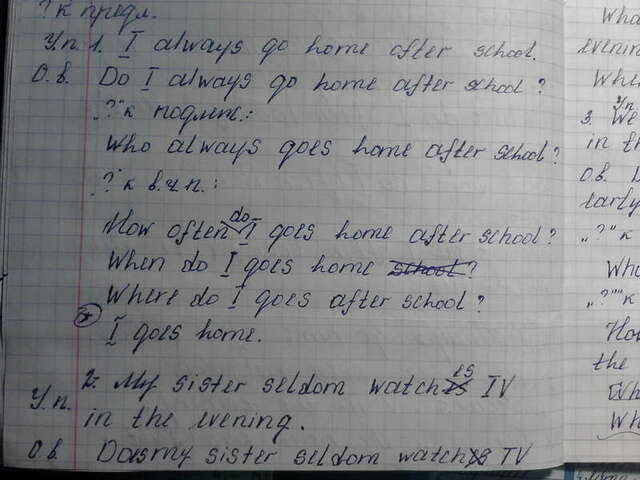 ? к предл.
У.п. 1. I always go home after school.
О.в. Do I always go home after school?
„?" к подлеж.:
Who always goes home after school?
„?" к в.ч.п.:
How often do I goes home after school?
When do I goes home school?
Where do I goes after school?
* I goes home.
2. My sister seldom watches TV
У.п.
in the evening.
О.в. Does my sister seldom watch TV
Wha
evening
When
Уп.
3. We
in the
О.в. D
early
„?" к
Who
„?" к
How
the
Wh
Wh